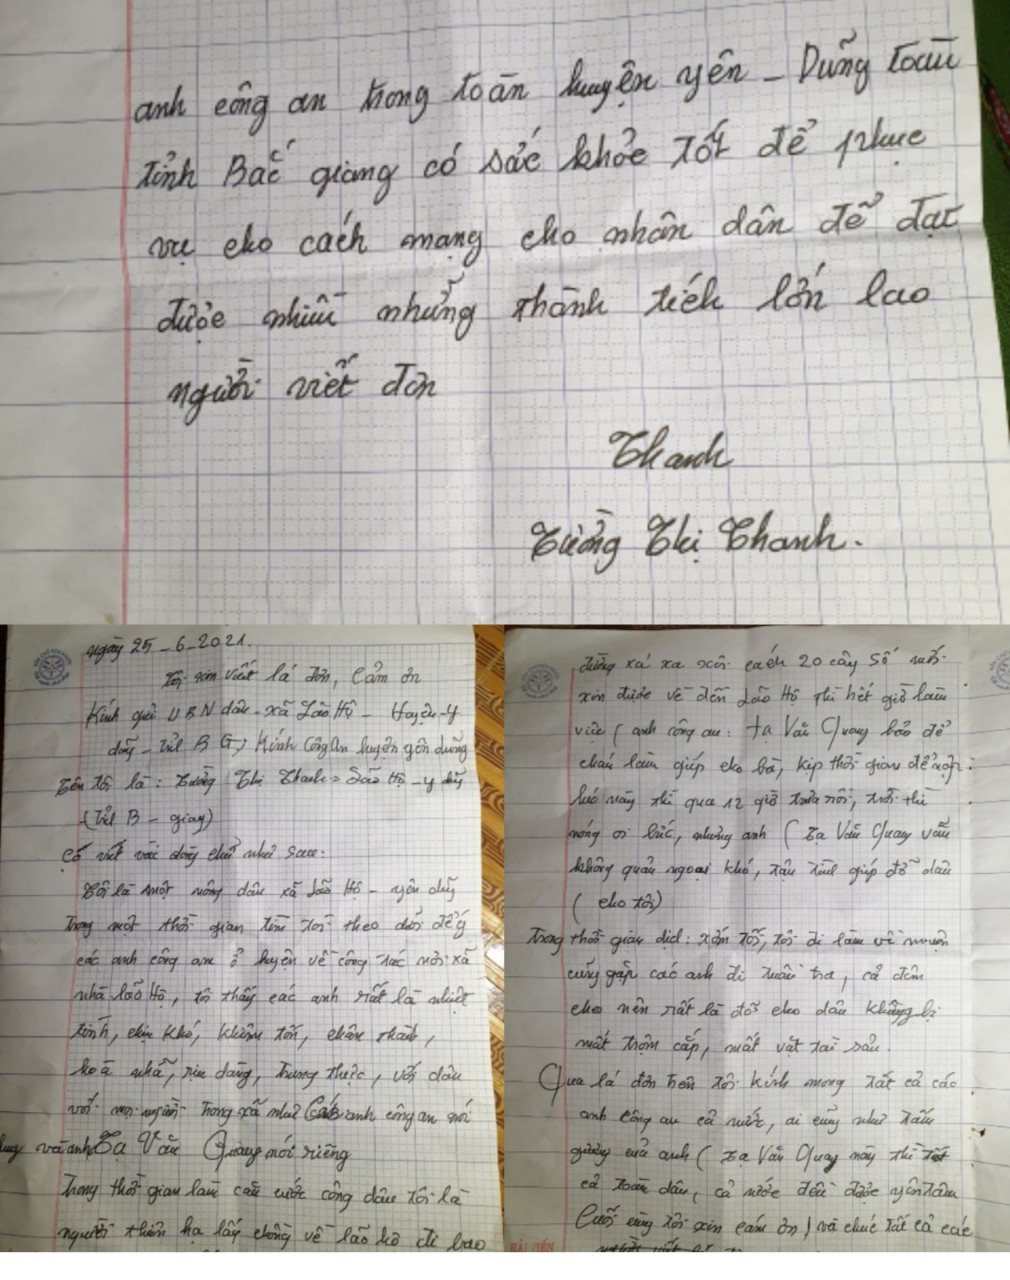 anh công an trong toàn huyện yên - Dũng toàn
tỉnh Bắc giang có sức khỏe tốt để phục
vụ cho cách mạng cho nhân dân để đạt
được nhiều những thành tích lớn lao
người viết đơn
Thanh
Tường Thị Thanh.
ngày 25-6-2021.
Tôi xin viết lá đơn, Cảm ơn
Kính gửi UBN dân - xã Lão Hộ - Huyện - Y
dũng - Tỉnh B G; Kính Công An huyện yên dũng
Tên tôi là: Tường Thị Thanh = Lão Hộ - y dũng
(Tỉnh B - giang)
Có viết vài dòng chữ như sau:
Tôi là một nông dân xã Lão Hộ - yên dũng
Trong một thời gian tìm tòi theo dõi để ý
các anh công an ở huyện về công tác mới xã
nhà lão Hộ, tôi thấy các anh rất là nhiệt
tình, chịu khó, khiêm tốn, chân thành,
hoà nhã, dịu dàng, trung thực, với dân
với mọi người trong xã như Các anh công an nói
chung và anh Tạ Văn Quang nói riêng
Trong thời gian làm căn cước công dân tôi là
người thiên hạ lấy chồng về lão hộ đi bao
đường xá xa xôi cách 20 cây số mới
xin được về đến Lão Hộ thì hết giờ làm
việc (anh công an: Tạ Văn Quang bảo để
cháu làm giúp cho bà, kịp thời gian để nộp.
lúc này thì qua 12 giờ trưa rồi, trời thì
nóng oi bức, nhưng anh (Tạ Văn Quang vẫn
không quản ngoại khó, tận tình giúp đỡ dân
(cho tôi)
Trong thời gian dịch: xóm tôi, tôi đi làm về muộn
cũng gặp các anh đi tuần tra, cả đêm
cho nên rất là đỡ cho dân không bị
mất trộm cắp, mất vặt tài sản.
Qua lá đơn trên tôi kính mong tất cả các
anh công an cả nước, ai cũng như tấm
gương của anh (Tạ Văn Quang này thì tốt
cả toàn dân, cả nước đều được yên tâm
Cuối cùng tôi xin cảm ơn) và chúc tất cả các